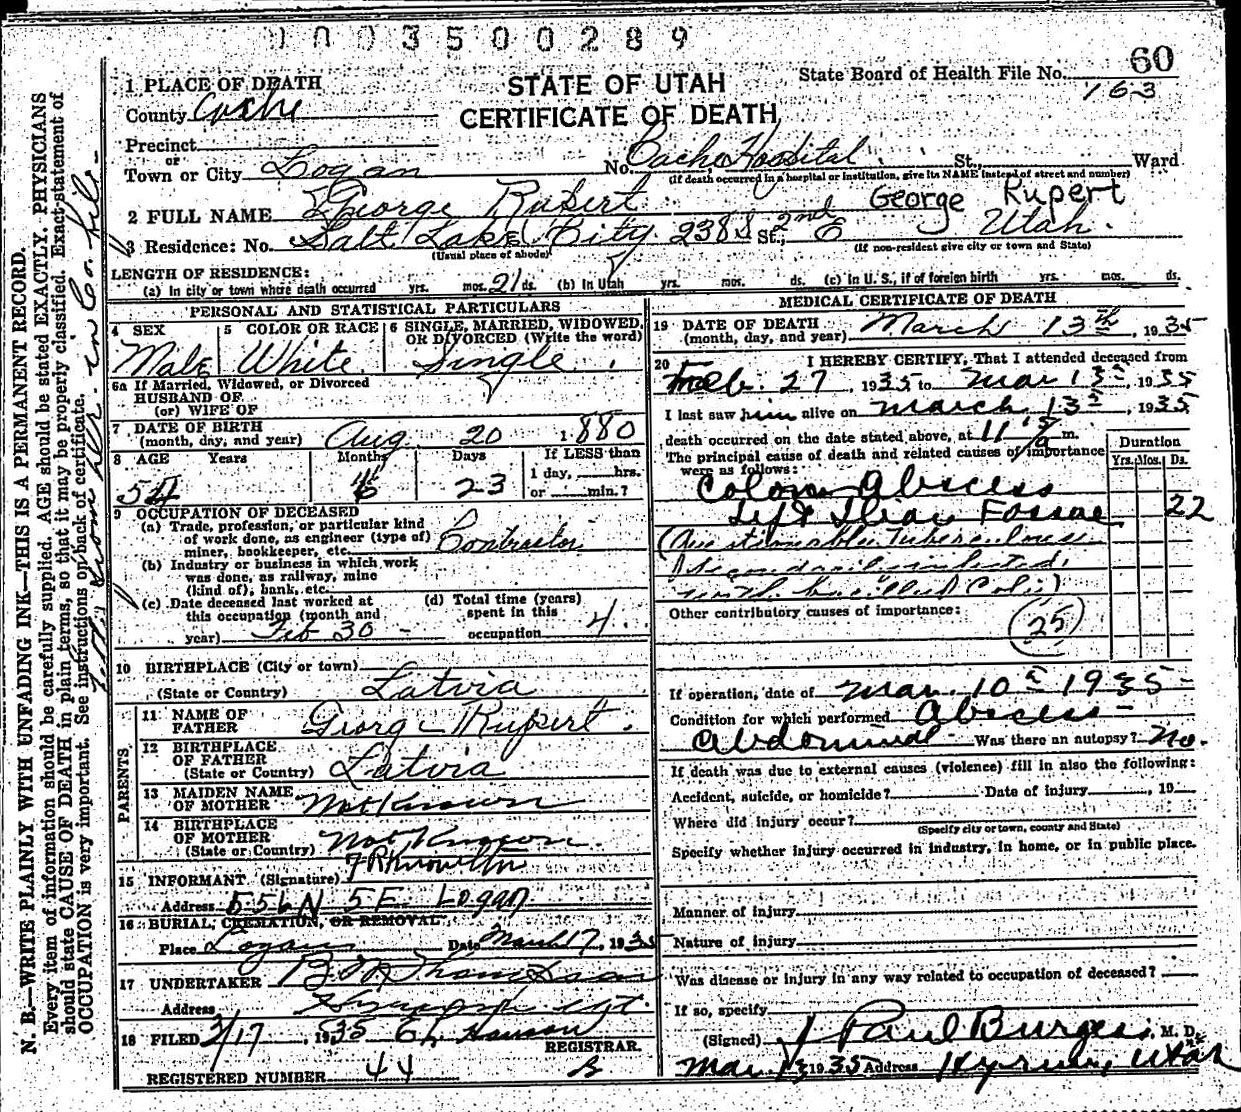 1003500289
STATE OF UTAH
CERTIFICATE OF DEATH
State Board of Health File No. 60
163
1 PLACE OF DEATH
County Cache
Precinct
or
Town or City Logan No. Cache Hospital St., Ward
(If death occurred in a hospital or institution, give its NAME instead of street and number)
2 FULL NAME George Rupert George Rupert
3 Residence: No. Salt Lake City 238 S St., 2nd E Utah.
(Usual place of abode) (If non-resident give city or town and State)
LENGTH OF RESIDENCE:
(a) In city or town where death occurred yrs. mos. 21 ds. (b) In Utah yrs. mos. ds. (c) in U. S., if of foreign birth yrs. mos. ds.
PERSONAL AND STATISTICAL PARTICULARS
4 SEX 5 COLOR OR RACE 6 SINGLE, MARRIED, WIDOWED, OR DIVORCED (Write the word)
Male White Single
6a If Married, Widowed, or Divorced
HUSBAND OF
(or) WIFE OF
7 DATE OF BIRTH
(month, day, and year) Aug 20 1880
8 AGE Years Months Days If LESS than
1 day, hrs.
54 6 23 or min.?
9 OCCUPATION OF DECEASED
(a) Trade, profession, or particular kind
of work done, as engineer (type of)
miner, bookkeeper, etc. Contractor
(b) Industry or business in which work
was done, as railway, mine
(kind of); bank, etc.
(c) Date deceased last worked at
this occupation (month and
year) Feb 30 -
(d) Total time (years)
spent in this
occupation 4.
10 BIRTHPLACE (City or town)
(State or Country) Latvia
PARENTS
11 NAME OF
FATHER George Rupert.
12 BIRTHPLACE
OF FATHER
(State or Country) Latvia
13 MAIDEN NAME
OF MOTHER Not Known
14 BIRTHPLACE
OF MOTHER
(State or Country) Not Known.
15 INFORMANT (Signature)
Address 556 N 5 E Logan
16 BURIAL, CREMATION, OR REMOVAL
Place Logan Date March 17, 1935
17 UNDERTAKER
Address
18 FILED 3/17, 1935 REGISTRAR.
REGISTERED NUMBER 44
MEDICAL CERTIFICATE OF DEATH
19 DATE OF DEATH
(month, day, and year) March 13th, 1935
20 I HEREBY CERTIFY, That I attended deceased from
Feb. 27, 1935 to Mar 13, 1935
I last saw him alive on March 13, 1935
death occurred on the date stated above, at 11 m.
The principal cause of death and related causes of importance
were as follows:
Duration
Yrs. Mos. Ds.
Colon Abscess
Left Iliac Fossae 22
Other contributory causes of importance:
(25)
If operation, date of Mar. 10 1935
Condition for which performed Abscess -
Abdominal Was there an autopsy? No.
If death was due to external causes (violence) fill in also the following:
Accident, suicide, or homicide? Date of injury, 19
Where did injury occur?
(Specify city or town, county and State)
Specify whether injury occurred in industry, in home, or in public place.
Manner of injury
Nature of injury
Was disease or injury in any way related to occupation of deceased?
If so, specify
(Signed) J Paul Burgess, M. D.
Mar 13 1935 Address Hyrum, Utah
N. B.—WRITE PLAINLY WITH UNFADING INK—THIS IS A PERMANENT RECORD.
Every item of information should be carefully supplied. AGE should be stated EXACTLY. PHYSICIANS
should state CAUSE OF DEATH in plain terms, so that it may be properly classified. Exact statement of
OCCUPATION is very important. See instructions on back of certificate.